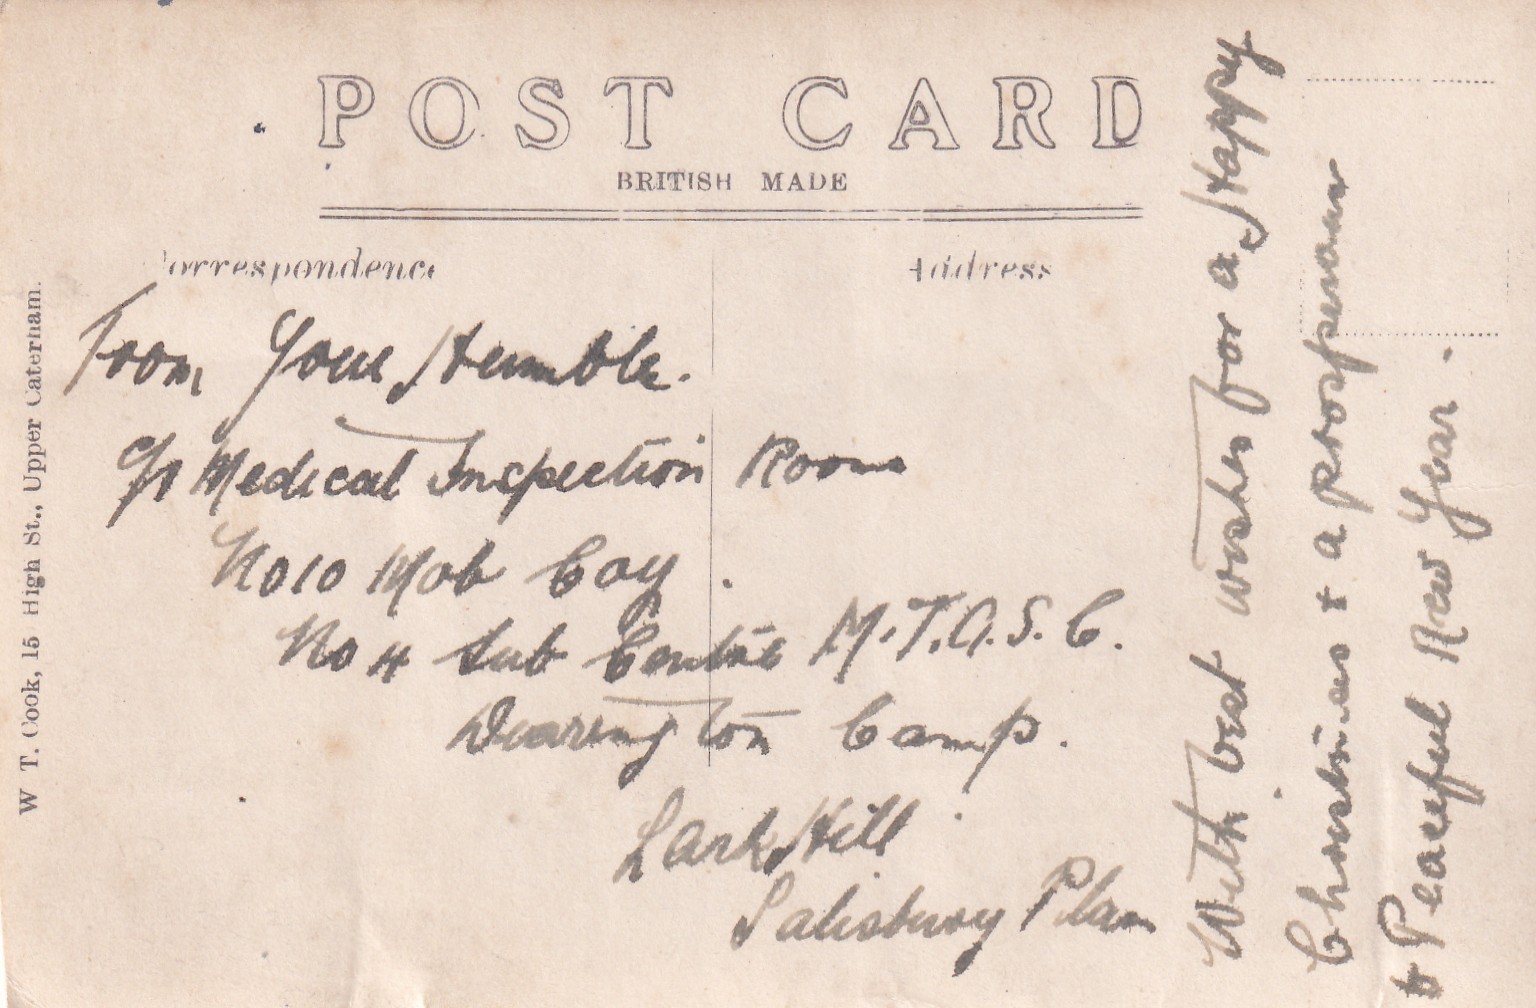 POST CARD
BRITISH MADE
Correspondence
Address
From Your Humble.
c/o Medical Inspection Room
No 10 Mob Coy.
No 4 Sub Centre M.T.A.S.C.
Camp.
Lark Hill
Salisbury Plain
With best wishes for a Happy
Christmas & a prosperous
& Peaceful New Year.
W. T. Cook, 15 High St., Upper Caterham.